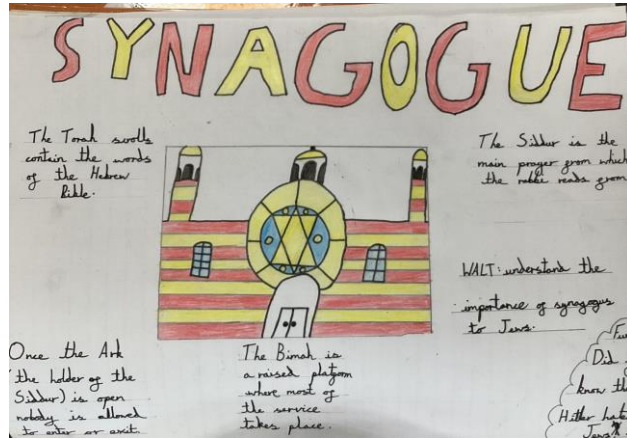 SYNAGOGUE
The Torah scrolls
contain the words
of the Hebrew
Bible.
The Siddur is the
main prayer from which
the rabbi reads from
WALT: understand the
importance of synagogus
to Jews.
Once the Ark
(the holder of the
Siddur) is open
nobody is allowed
to enter or exit.
The Bimah is
a raised platform
where most of
the service
takes place.
Did
know th
Hitler hate
Jews?